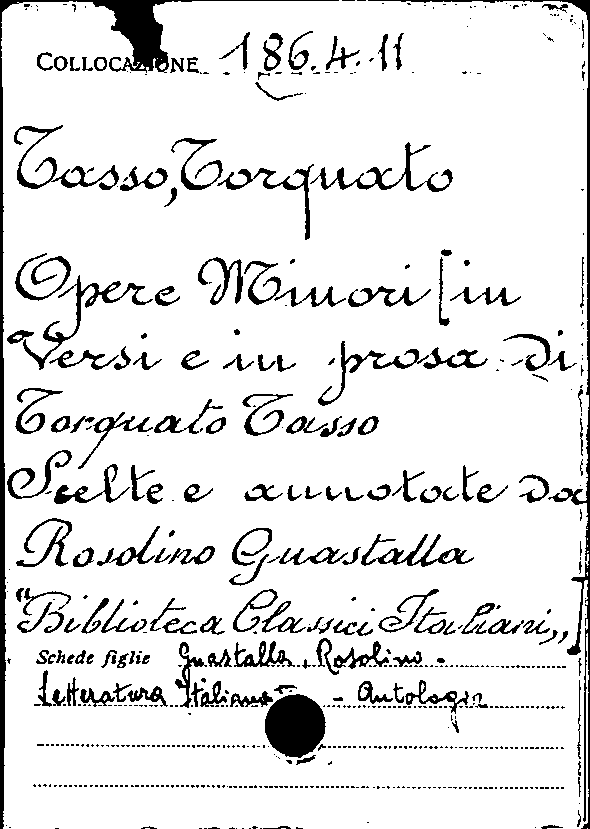 COLLOCAZIONE 186.4.11
Tasso, Torquato
Opere Minori [in
Versi e in prosa di
Torquato Tasso
Scelte e annotate da
Rosolino Guastalla
"Biblioteca Classici Italiani,,]
Schede figlie Guastalla, Rosolino -
Letteratura Italiana - Antologia